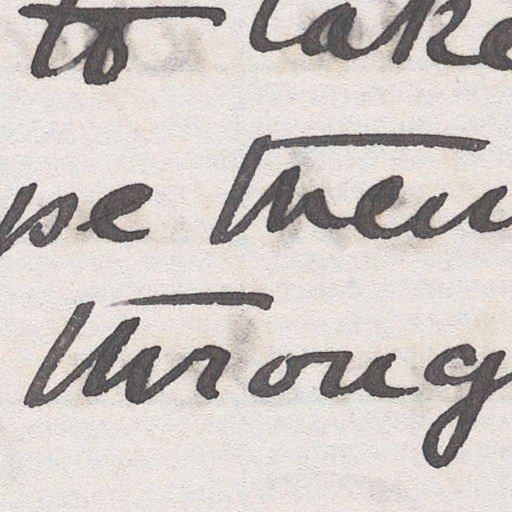 to take
pe then
throug